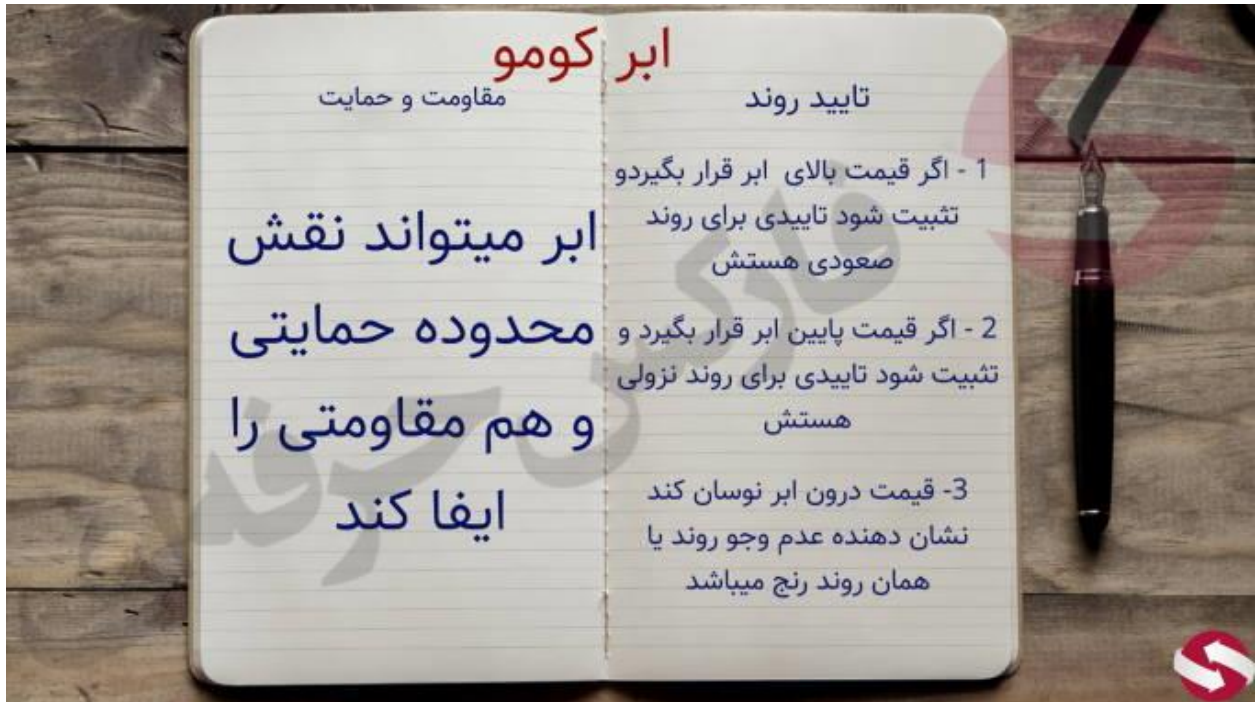 ابر کومو
تایید روند
1 - اگر قیمت بالای ابر قرار بگیردو
تثبیت شود تاییدی برای روند
صعودی هستش
2 - اگر قیمت پایین ابر قرار بگیرد و
تثبیت شود تاییدی برای روند نزولی
هستش
3- قیمت درون ابر نوسان کند
نشان دهنده عدم وجو روند یا
همان روند رنج میباشد
مقاومت و حمایت
ابر میتواند نقش
محدوده حمایتی
و هم مقاومتی را
ایفا کند
فارکس حرفه